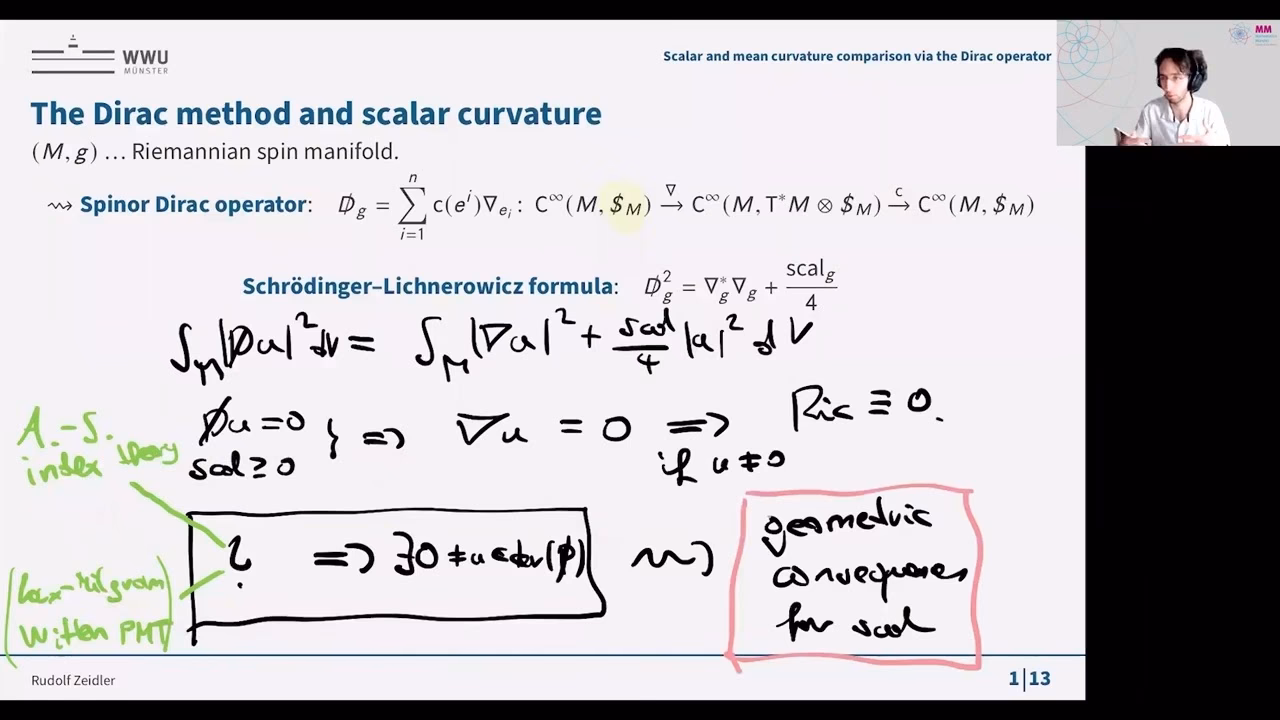 WWU
MÜNSTER
Scalar and mean curvature comparison via the Dirac operator
MM
The Dirac method and scalar curvature
(M, g) … Riemannian spin manifold.
⇝ Spinor Dirac operator: D̸_g = ∑_{i=1}^{n} c(e^i)∇_{e_i} : C^∞(M, $_M) →^∇ C^∞(M, T*M ⊗ $_M) →^c C^∞(M, $_M)
Schrödinger–Lichnerowicz formula: D̸_g^2 = ∇_g^*∇_g + scal_g/4
∫_M |D̸u|^2 dV = ∫_M |∇u|^2 + scal/4 |u|^2 dV
D̸u = 0
scal ≥ 0
} ⇒ ∇u = 0 ⇒ Ric ≡ 0.
if u ≠ 0
A.-S.
index theory
? ⇒ ∃ 0 ≠ u ∈ ker(D̸) ⇝
(Lax-Milgram
Witten PMT)
geometric
consequences
for scal
Rudolf Zeidler
1|13